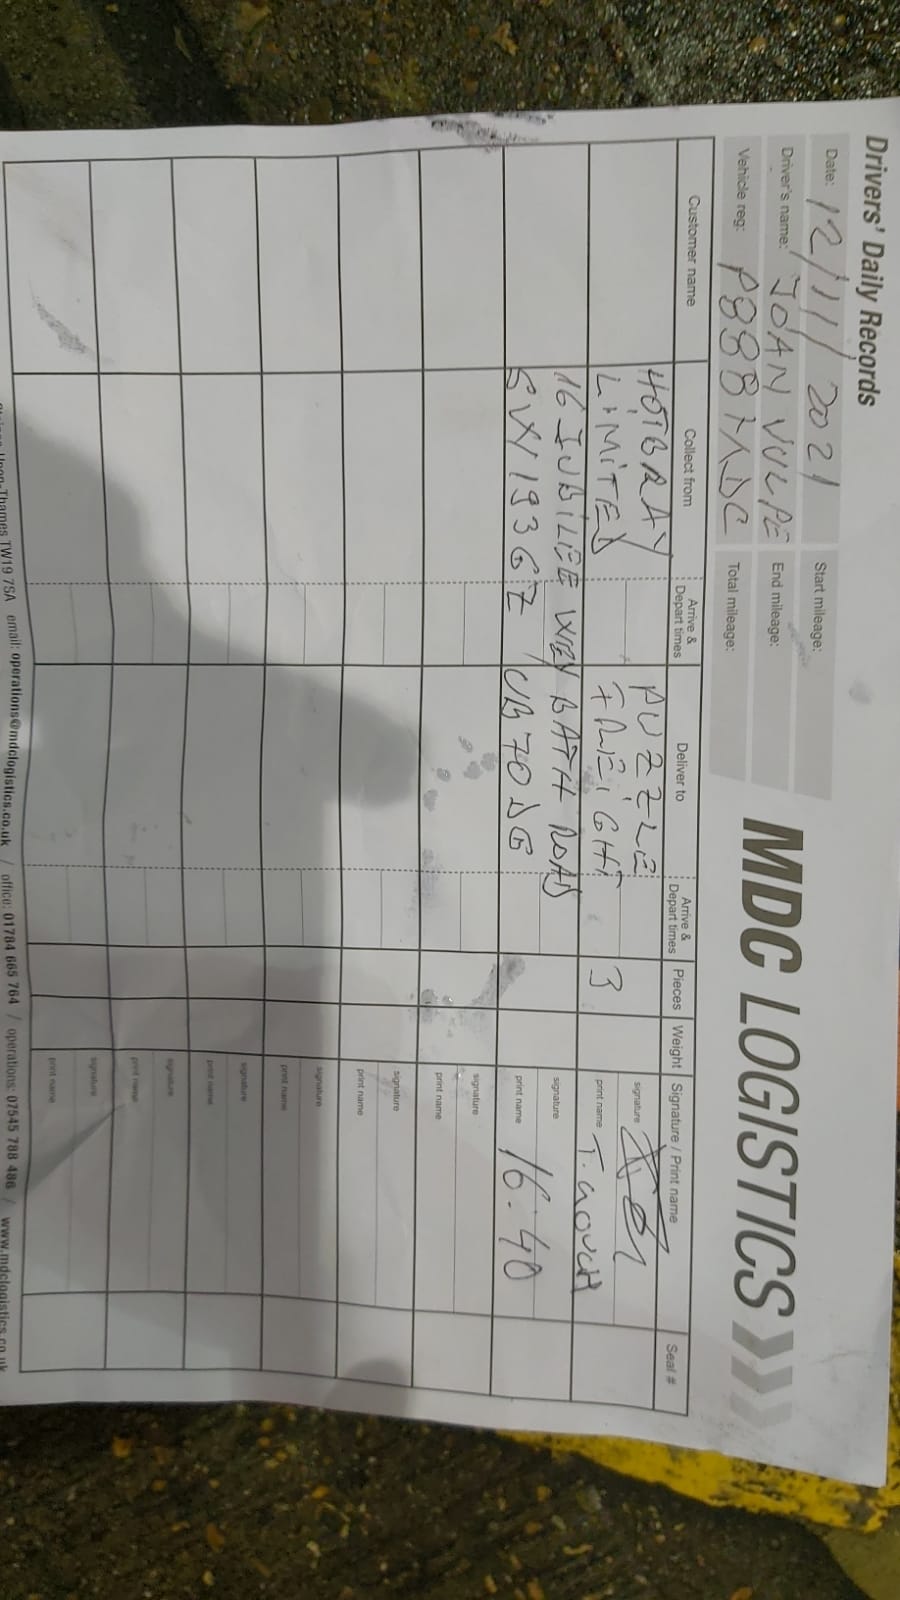 Drivers' Daily Records
MDC LOGISTICS
Date: 12/11/2021
Start mileage:
Driver's name: JOAN VULPE
End mileage:
Vehicle reg:
Total mileage:
Customer name Collect from Arrive & Depart times Deliver to Arrive & Depart times Pieces Weight Signature / Print name Seal #
HOTBRAY PUZZLE signature
LIMITED FREIGHT 3 print name T. GOUCH
16 JUBILEE WAY BATH ROAD signature
SW193GZ UB70DG print name 16:40
signature
print name
signature
print name
signature
print name
signature
print name
signature
print name
signature
print name
Upon-Thames TW19 7SA email: operations@mdclogistics.co.uk / office: 01784 665 764 / operations: 07545 788 486 / www.mdclogistics.co.uk